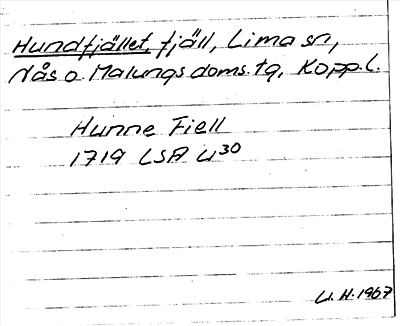 Hundfjället, fjäll, Lima sn,
Nås o. Malungs doms. tg, Kopp. l.
Hunne Fiell
1719 LSA U30
U. H. 1967